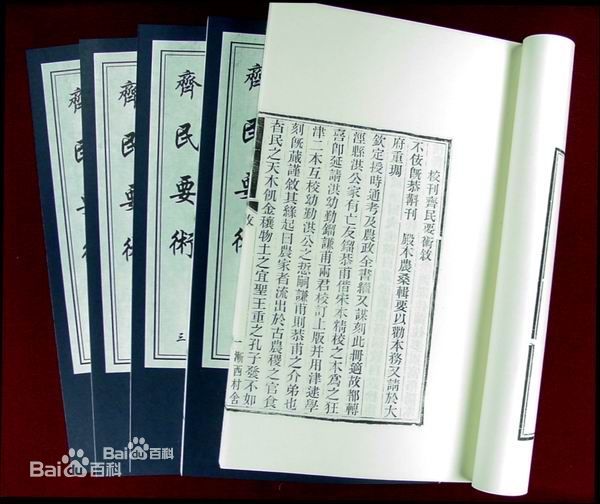 齊民要術
齊民要
齊民要術
三
齊民要術
校刊齊民要術敘
不佞旣恭斠刊 殿本農桑輯要以勸本務又請於大
府重琱
欽定授時通考及農政全書繼又謀刻此冊適故都轉
涇縣洪公家有亡友鎦恭甫借宋本精校之本爲之狂
喜卽延請洪幼勤鎦謙甫兩君校訂上版幷用津逮學
津二本互校幼勤洪公之悊嗣謙甫則恭甫之介弟也
刻旣蕆謹敘其緣起曰農家者流出於古農稷之官食
者民之天木飢金穰物土之宜聖王重之孔子發不如
敘
一
漸西村舍
Bai百科
Bai百科